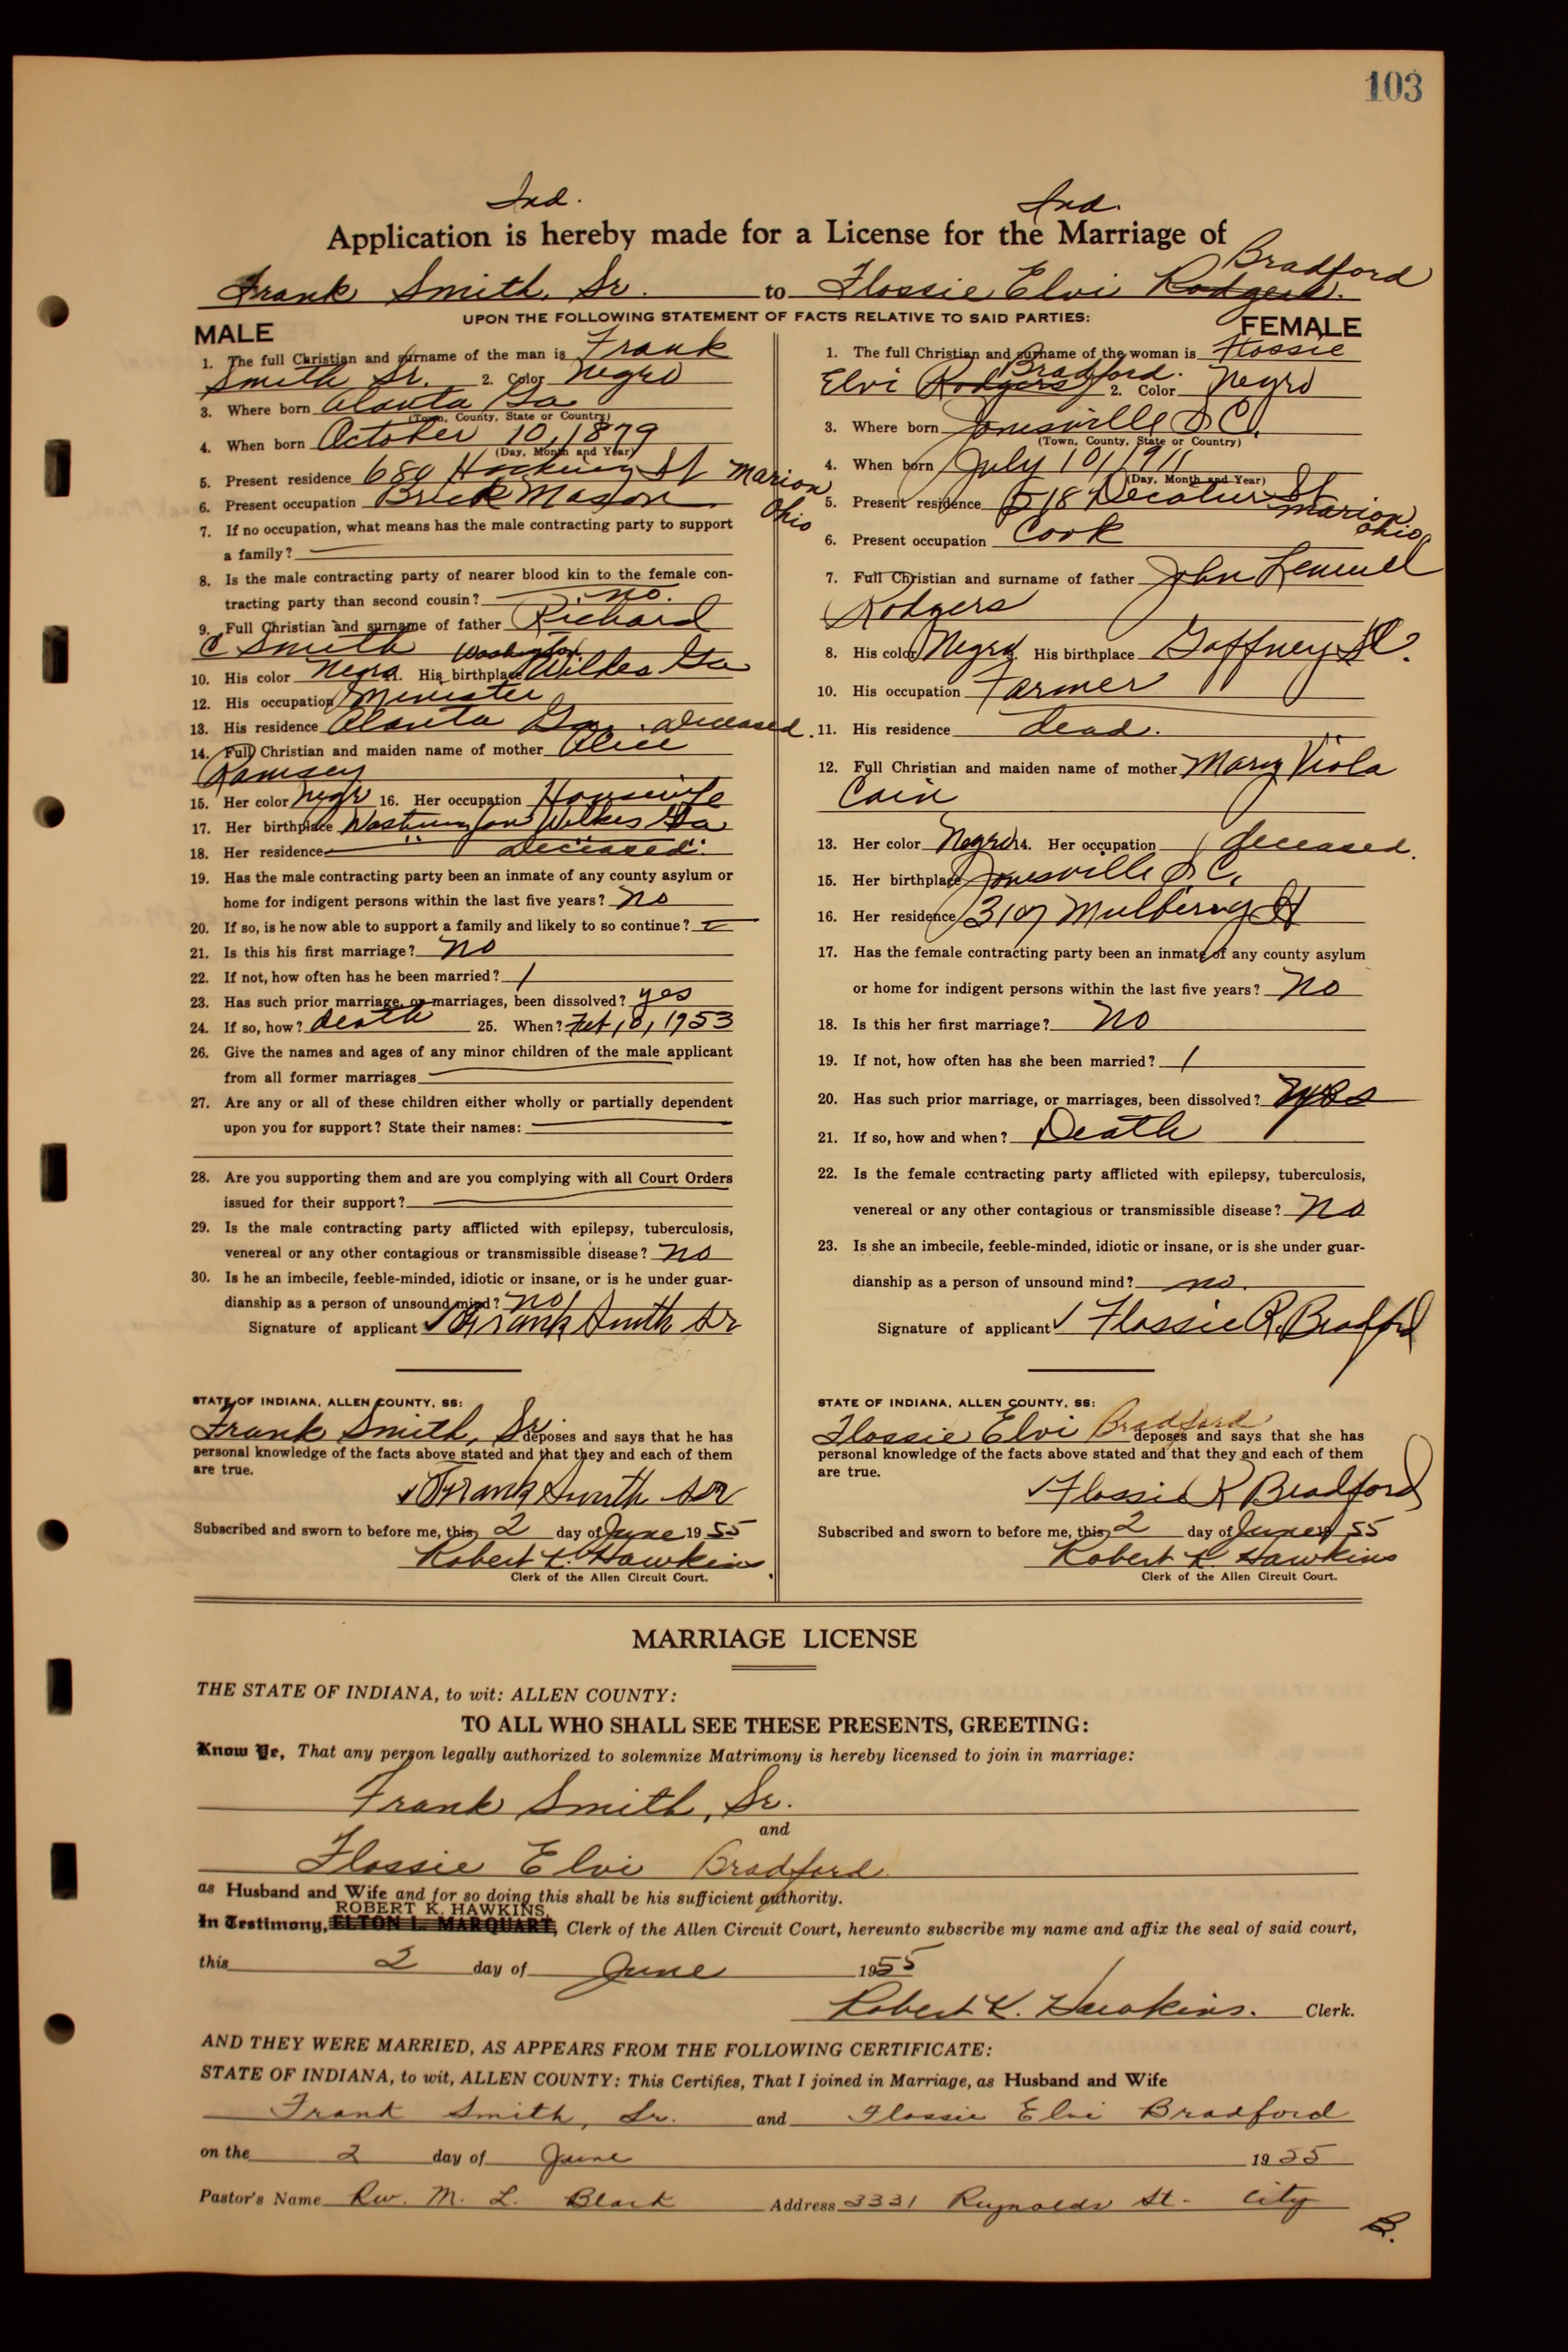 103
Ind. Ind.
Application is hereby made for a License for the Marriage of
Bradford
Frank Smith, Sr. to Flossie Elvi Rodgers.
UPON THE FOLLOWING STATEMENT OF FACTS RELATIVE TO SAID PARTIES:
MALE
1. The full Christian and surname of the man is Frank
Smith Sr. 2. Color Negro
3. Where born Alanta Ga
(Town, County, State or Country)
4. When born October 10, 1879
(Day, Month and Year)
5. Present residence 680 Hocking St Marion
Ohio
6. Present occupation Brick Mason
7. If no occupation, what means has the male contracting party to support
a family?
8. Is the male contracting party of nearer blood kin to the female con-
tracting party than second cousin? no.
9. Full Christian and surname of father Richard
C Smith Washington
10. His color Negro 11. His birthplace Wilkes Ga
12. His occupation Minister
13. His residence Alanta Ga. deceased.
14. Full Christian and maiden name of mother Alice
Ramsey
15. Her color Negr 16. Her occupation Housewife
17. Her birthplace Washington Wilkes Ga
18. Her residence deceased.
19. Has the male contracting party been an inmate of any county asylum or
home for indigent persons within the last five years? no
20. If so, is he now able to support a family and likely to so continue?
21. Is this his first marriage? no
22. If not, how often has he been married? 1
23. Has such prior marriage, or marriages, been dissolved? yes
24. If so, how? death 25. When? 1953
26. Give the names and ages of any minor children of the male applicant
from all former marriages
27. Are any or all of these children either wholly or partially dependent
upon you for support? State their names:
28. Are you supporting them and are you complying with all Court Orders
issued for their support?
29. Is the male contracting party afflicted with epilepsy, tuberculosis,
venereal or any other contagious or transmissible disease? no
30. Is he an imbecile, feeble-minded, idiotic or insane, or is he under guar-
dianship as a person of unsound mind? no
Signature of applicant Frank Smith Sr
STATE OF INDIANA, ALLEN COUNTY, SS:
Frank Smith, Sr. deposes and says that he has
personal knowledge of the facts above stated and that they and each of them
are true.
Frank Smith Sr
Subscribed and sworn to before me, this 2 day of June 1955
Robert K. Hawkins
Clerk of the Allen Circuit Court.
FEMALE
1. The full Christian and surname of the woman is Flossie
Bradford.
Elvi Rodgers 2. Color Negro
3. Where born Jonesville S.C.
(Town, County, State or Country)
4. When born July 10, 1911
(Day, Month and Year)
5. Present residence 518 Decatur St
Marion
Ohio
6. Present occupation Cook
7. Full Christian and surname of father John Lemuel
Rodgers
8. His color Negro 9. His birthplace Gaffney S.C.
10. His occupation Farmer
11. His residence dead.
12. Full Christian and maiden name of mother Mary Viola
Cain
13. Her color Negro 14. Her occupation deceased.
15. Her birthplace Jonesville S.C.
16. Her residence Mulberry St
17. Has the female contracting party been an inmate of any county asylum
or home for indigent persons within the last five years? no
18. Is this her first marriage? no
19. If not, how often has she been married? 1
20. Has such prior marriage, or marriages, been dissolved? yes
21. If so, how and when? Death
22. Is the female contracting party afflicted with epilepsy, tuberculosis,
venereal or any other contagious or transmissible disease? no
23. Is she an imbecile, feeble-minded, idiotic or insane, or is she under guar-
dianship as a person of unsound mind? no.
Signature of applicant Flossie R. Bradford
STATE OF INDIANA, ALLEN COUNTY, SS:
Flossie Elvi Bradford deposes and says that she has
personal knowledge of the facts above stated and that they and each of them
are true.
Flossie R Bradford
Subscribed and sworn to before me, this 2 day of June 1955
Robert K. Hawkins
Clerk of the Allen Circuit Court.
MARRIAGE LICENSE
THE STATE OF INDIANA, to wit: ALLEN COUNTY:
TO ALL WHO SHALL SEE THESE PRESENTS, GREETING:
Know Ye, That any person legally authorized to solemnize Matrimony is hereby licensed to join in marriage:
Frank Smith, Sr.
and
Flossie Elvi Bradford
as Husband and Wife and for so doing this shall be his sufficient authority.
ROBERT K. HAWKINS
In Testimony, ELTON L. MARQUART, Clerk of the Allen Circuit Court, hereunto subscribe my name and affix the seal of said court,
this 2 day of June 1955
Robert K. Hawkins. Clerk.
AND THEY WERE MARRIED, AS APPEARS FROM THE FOLLOWING CERTIFICATE:
STATE OF INDIANA, to wit, ALLEN COUNTY: This Certifies, That I joined in Marriage, as Husband and Wife
Frank Smith, Sr. and Flossie Elvi Bradford
on the 2 day of June 1955
Pastor's Name Rev. M. L. Black Address 3331 Reynolds St. City
B.